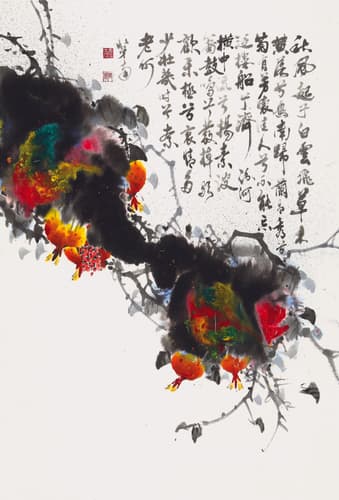 秋風起兮白雲飛草木
黃落兮雁南歸蘭有秀兮
菊有芳懷佳人兮不能忘
泛樓船兮濟汾河
橫中流兮揚素波
簫鼓鳴兮發棹歌
歡樂極兮哀情多
少壯幾時兮奈
老何